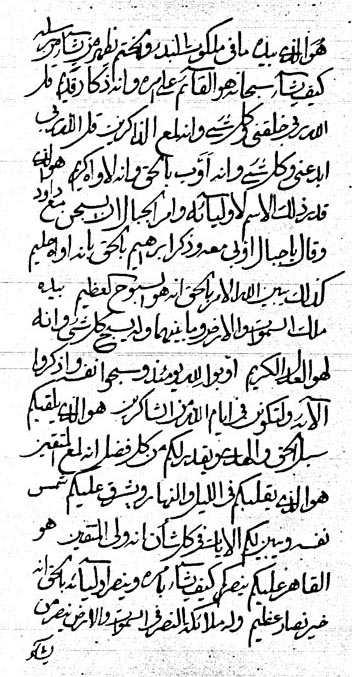 هو الذي بيده ما في ملكوت البدء والختم يظهر من يشاء بامره
كيف يشاء سبحانه هو القائم على امره وانه اذ كان قديما قل
الله ربي خلقني وكل شيء وانه لمع الذاكرين قل الله ربي
ابدعني وكل شيء وانه اواب بالحق وانه لاواه كريم هو الذي
قدر ذلك الاسم لاوليائه وامر الجبال ان يسبحن مع داود
وقال يا جبال اوبي معه وذكر ابرهيم بالحق بانه اواه حليم
كذلك يبين الله الامر بالحق انه هو السبوح العظيم بيده
ملك السموات والارض وما بينهما وله يسبح كل شيء وانه
لهو العلي الكريم اوبوا لله يومئذ وسبحوا نفسه واذكروا
الآية ولتكونن في ايام الله من الشاكرين هو الذي يلقيكم
سبل الحق والهدى ويقدر لكم من كل فضل انه لمع المتقين
هو الذي يقلبكم في الليل والنهار ويشرق عليكم شمس
نفسه ويبين لكم الايات في كل شأن انه ولي المتقين هو
القاهر عليكم ينصركم كيف يشاء بامره وينصر اوليائه بالحق انه
خير نصار عظيم وله ملائكة النصر في السموات والارض ينصر من
يشاء